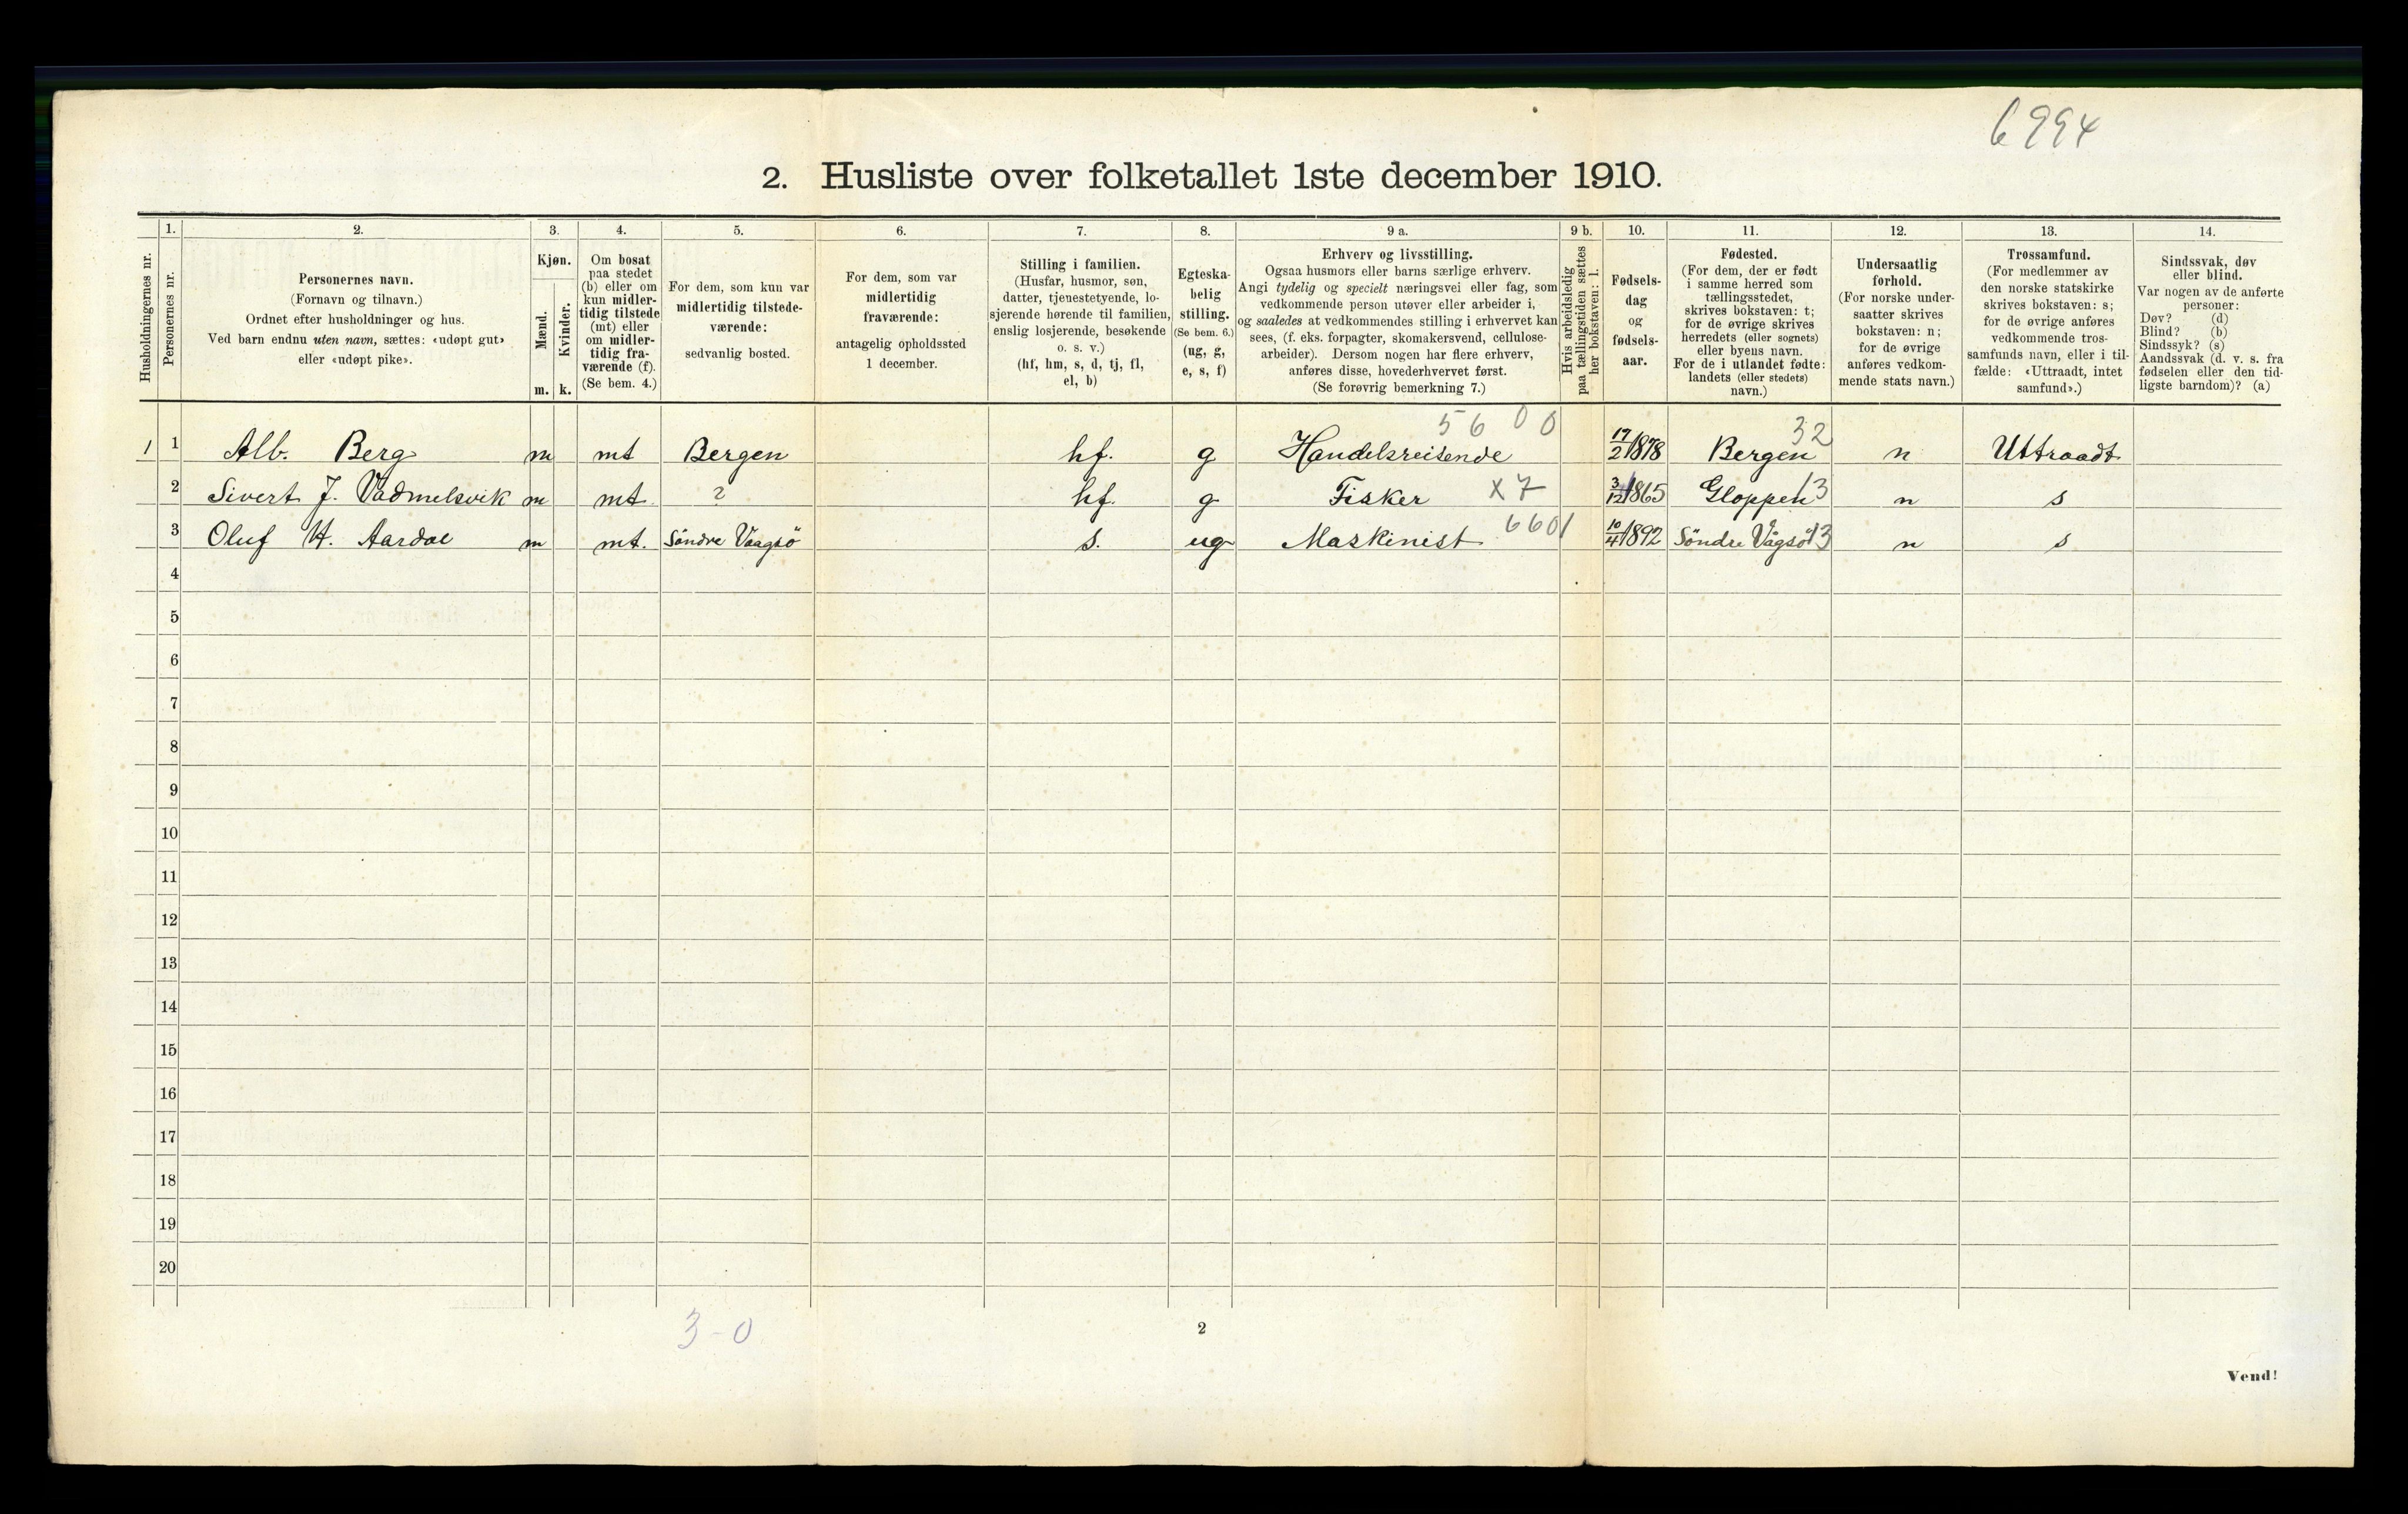 6994
2. Husliste over folketallet 1ste december 1910.
Husholdningernes nr.
1.
Personernes nr.
2.
Personernes navn.
(Fornavn og tilnavn.)
Ordnet efter husholdninger og hus.
Ved barn endnu uten navn, sættes: «udøpt gut»
eller «udøpt pike».
3.
Kjøn.
Mænd.
Kvinder.
m. k.
4.
Om bosat
paa stedet
(b) eller om
kun midler-
tidig tilstede
(mt) eller
om midler-
tidig fra-
værende (f).
(Se bem. 4.)
5.
For dem, som kun var
midlertidig tilstede-
værende:
sedvanlig bosted.
6.
For dem, som var
midlertidig
fraværende:
antagelig opholdssted
1 december.
7.
Stilling i familien.
(Husfar, husmor, søn,
datter, tjenestetyende, lo-
sjerende hørende til familien,
enslig losjerende, besøkende
o. s. v.)
(hf, hm, s, d, tj, fl,
el, b)
8.
Egteska-
belig
stilling.
(Se bem. 6.)
(ug, g,
e, s, f)
9 a.
Erhverv og livsstilling.
Ogsaa husmors eller barns særlige erhverv.
Angi tydelig og specielt næringsvei eller fag, som
vedkommende person utøver eller arbeider i,
og saaledes at vedkommendes stilling i erhvervet kan
sees, (f. eks. forpagter, skomakersvend, cellulose-
arbeider). Dersom nogen har flere erhverv,
anføres disse, hovederhvervet først.
(Se forøvrig bemerkning 7.)
9 b.
Hvis arbeidsledig
paa tællingstiden sættes
her bokstaven: l.
10.
Fødsels-
dag
og
fødsels-
aar.
11.
Fødested.
(For dem, der er født
i samme herred som
tællingsstedet,
skrives bokstaven: t;
for de øvrige skrives
herredets (eller sognets)
eller byens navn.
For de i utlandet fødte:
landets (eller stedets)
navn.)
12.
Undersaatlig
forhold.
(For norske under-
saatter skrives
bokstaven: n;
for de øvrige
anføres vedkom-
mende stats navn.)
13.
Trossamfund.
(For medlemmer av
den norske statskirke
skrives bokstaven: s;
for de øvrige anføres
vedkommende tros-
samfunds navn, eller i til-
fælde: «Uttraadt, intet
samfund».)
14.
Sindssvak, døv
eller blind.
Var nogen av de anførte
personer:
Døv? (d)
Blind? (b)
Sindssyk? (s)
Aandssvak (d. v. s. fra
fødselen eller den tid-
ligste barndom)? (a)
1 1 Alb. Berg m mt Bergen hf. g Handelsreisende 5600 17/2 1878 Bergen 32 n Uttraadt
2 Sivert J. Vadmelsvik m mt ? hf. g Fisker x7 3/12 1865 Gloppen 13 n s
3 Oluf H. Aardal m mt. Söndre Vaagsö s. ug Maskinist 6601 10/4 1892 Söndre Vågsö 13 n s
4
5
6
7
8
9
10
11
12
13
14
15
16
17
18
19
20
3-0
2
Vend!